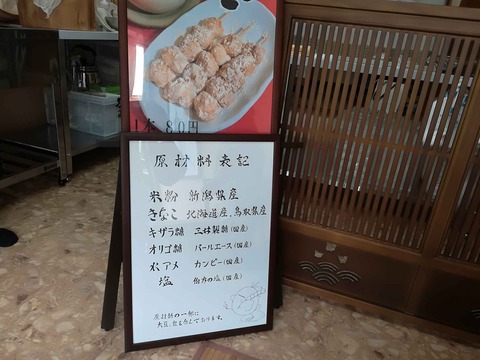 1本 80円
原材料表記
米粉 新潟県産
きなこ 北海道産、鳥取県産
キザラ糖 三井製糖(国産)
オリゴ糖 パールエース(国産)
水アメ カンピー(国産)
塩 伯方の塩(国産)
原材料の一部に
大豆、